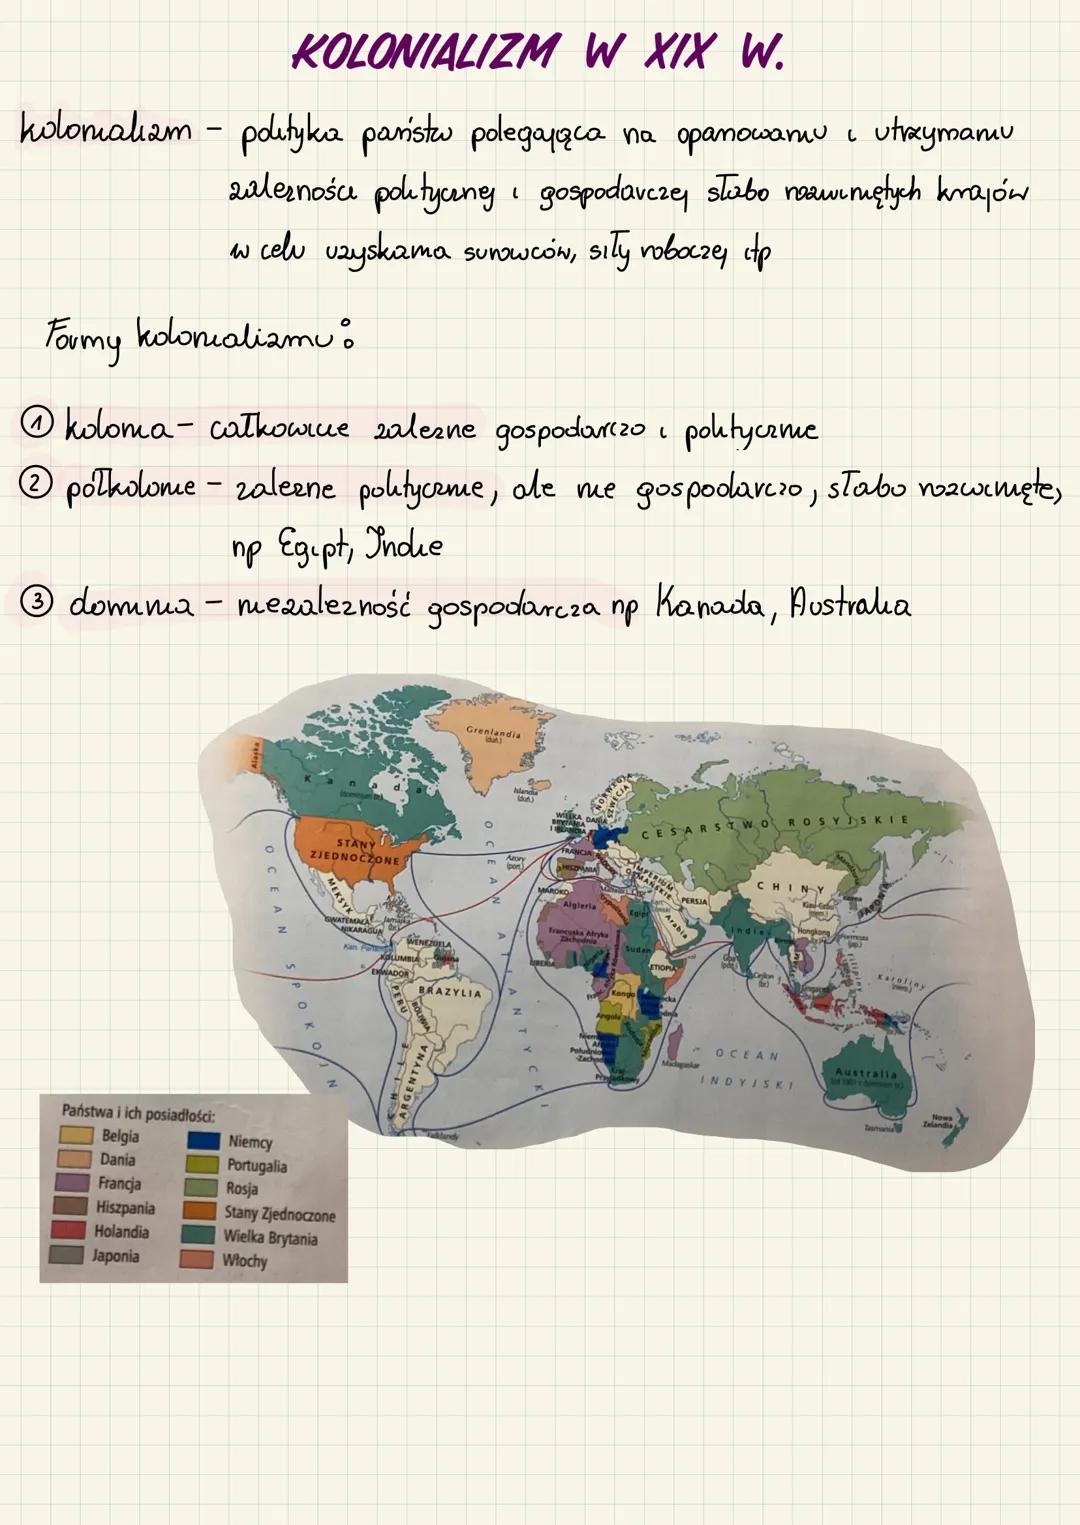 KOLONIALIZM W XIX W.
kolonializm – polityka państw polegająca na opanowaniu i utrzymaniu
zależności politycznej i gospodarczej słabo rozwiniętych krajów
w celu uzyskania surowców, siły roboczej itp
Formy kolonializmu:
① kolonia – całkowicie zależne gospodarczo i politycznie
② półkolonie – zależne politycznie, ale nie gospodarczo, słabo rozwinięte,
np Egipt, Indie
③ dominia – niezależność gospodarcza np Kanada, Australia
Grenlandia
(duń.)
Alaska
Kanada
(dominium br.)
Islandia
(duń.)
NORWEGIA
SZWECJA
WIELKA
BRYTANIA
I IRLANDIA
DANIA
CESARSTWO ROSYJSKIE
STANY
ZJEDNOCZONE
OCEAN SPOKOJNY
OCEAN ATLANTYCKI
FRANCJA
HISZPANIA
Azory
(port.)
IMPERIUM
OSMAŃSKIE
PERSJA
CHINY
Mandżuria
Korea
JAPONIA
Kiau-Czou
(niem.)
MEKSYK
MAROKO
Algieria
Trypolitania
Egipt
Arabia
Indie
Hongkong
(br.)
Formoza
(jap.)
GWATEMALA
NIKARAGUA
Jamajka
(br.)
Francuska Afryka
Zachodnia
Sudan
Goa
(port.)
SYJAM
Filipiny
Kan. Panamski
WENEZUELA
KOLUMBIA
Gujana
LIBERIA
ETIOPIA
Cejlon
(br.)
Karoliny
(niem.)
EKWADOR
PERU
BRAZYLIA
Kongo
BOLIWIA
Angola
Madagaskar
OCEAN
INDYJSKI
CHILE
ARGENTYNA
Niemiecka
Afryka
Południowo-
-Zachodnia
Kraj
Przylądkowy
Australia
(od 1901 r. dominium br.)
Falklandy
Tasmania
Nowa
Zelandia
Państwa i ich posiadłości:
Belgia
Dania
Francja
Hiszpania
Holandia
Japonia
Niemcy
Portugalia
Rosja
Stany Zjednoczone
Wielka Brytania
Włochy